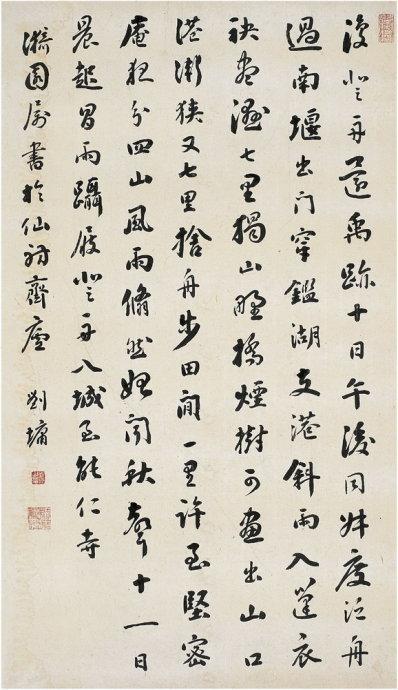 復登舟還禹跡十日午後同度泛舟
過南堰出门穿鑑湖支港斜雨入篷衣
袂盡濕七里獨山野橋煙樹可畫出山口
港漸狹又七里捨舟步田間一里許至堅密
庵夜分四山風雨翛然始聞秋聲十一日
晨起冒雨躡屐登舟入城至能仁寺
漪園屬書於仙舫齋
劉墉